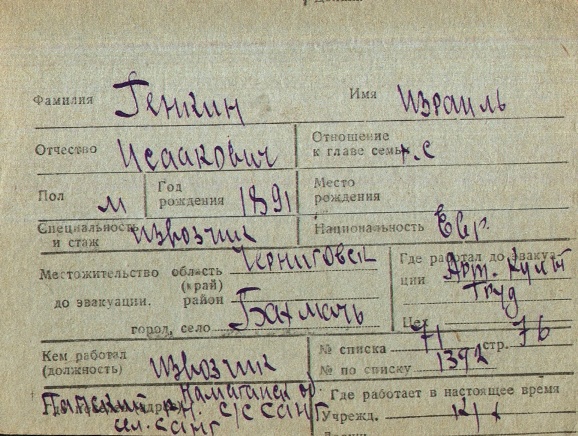 Фамилия Генкин Имя Израиль
Отчество Исаакович Отношение к главе семьи г.с
Пол м Год рождения 1891 Место рождения
Специальность и стаж извозчик Национальность Евр.
Местожительство до эвакуации. область (край) Черниговск
район
город, село Бахмачь
Где работал до эвакуации Арт. Культ
Труд
Цех
Кем работал (должность) извозчик
№ списка 71 стр. 76
№ по списку 1392
Наманганск об.
Папский р.н. с/с Санг
ул. Санг
Где работает в настоящее время
Учрежд.